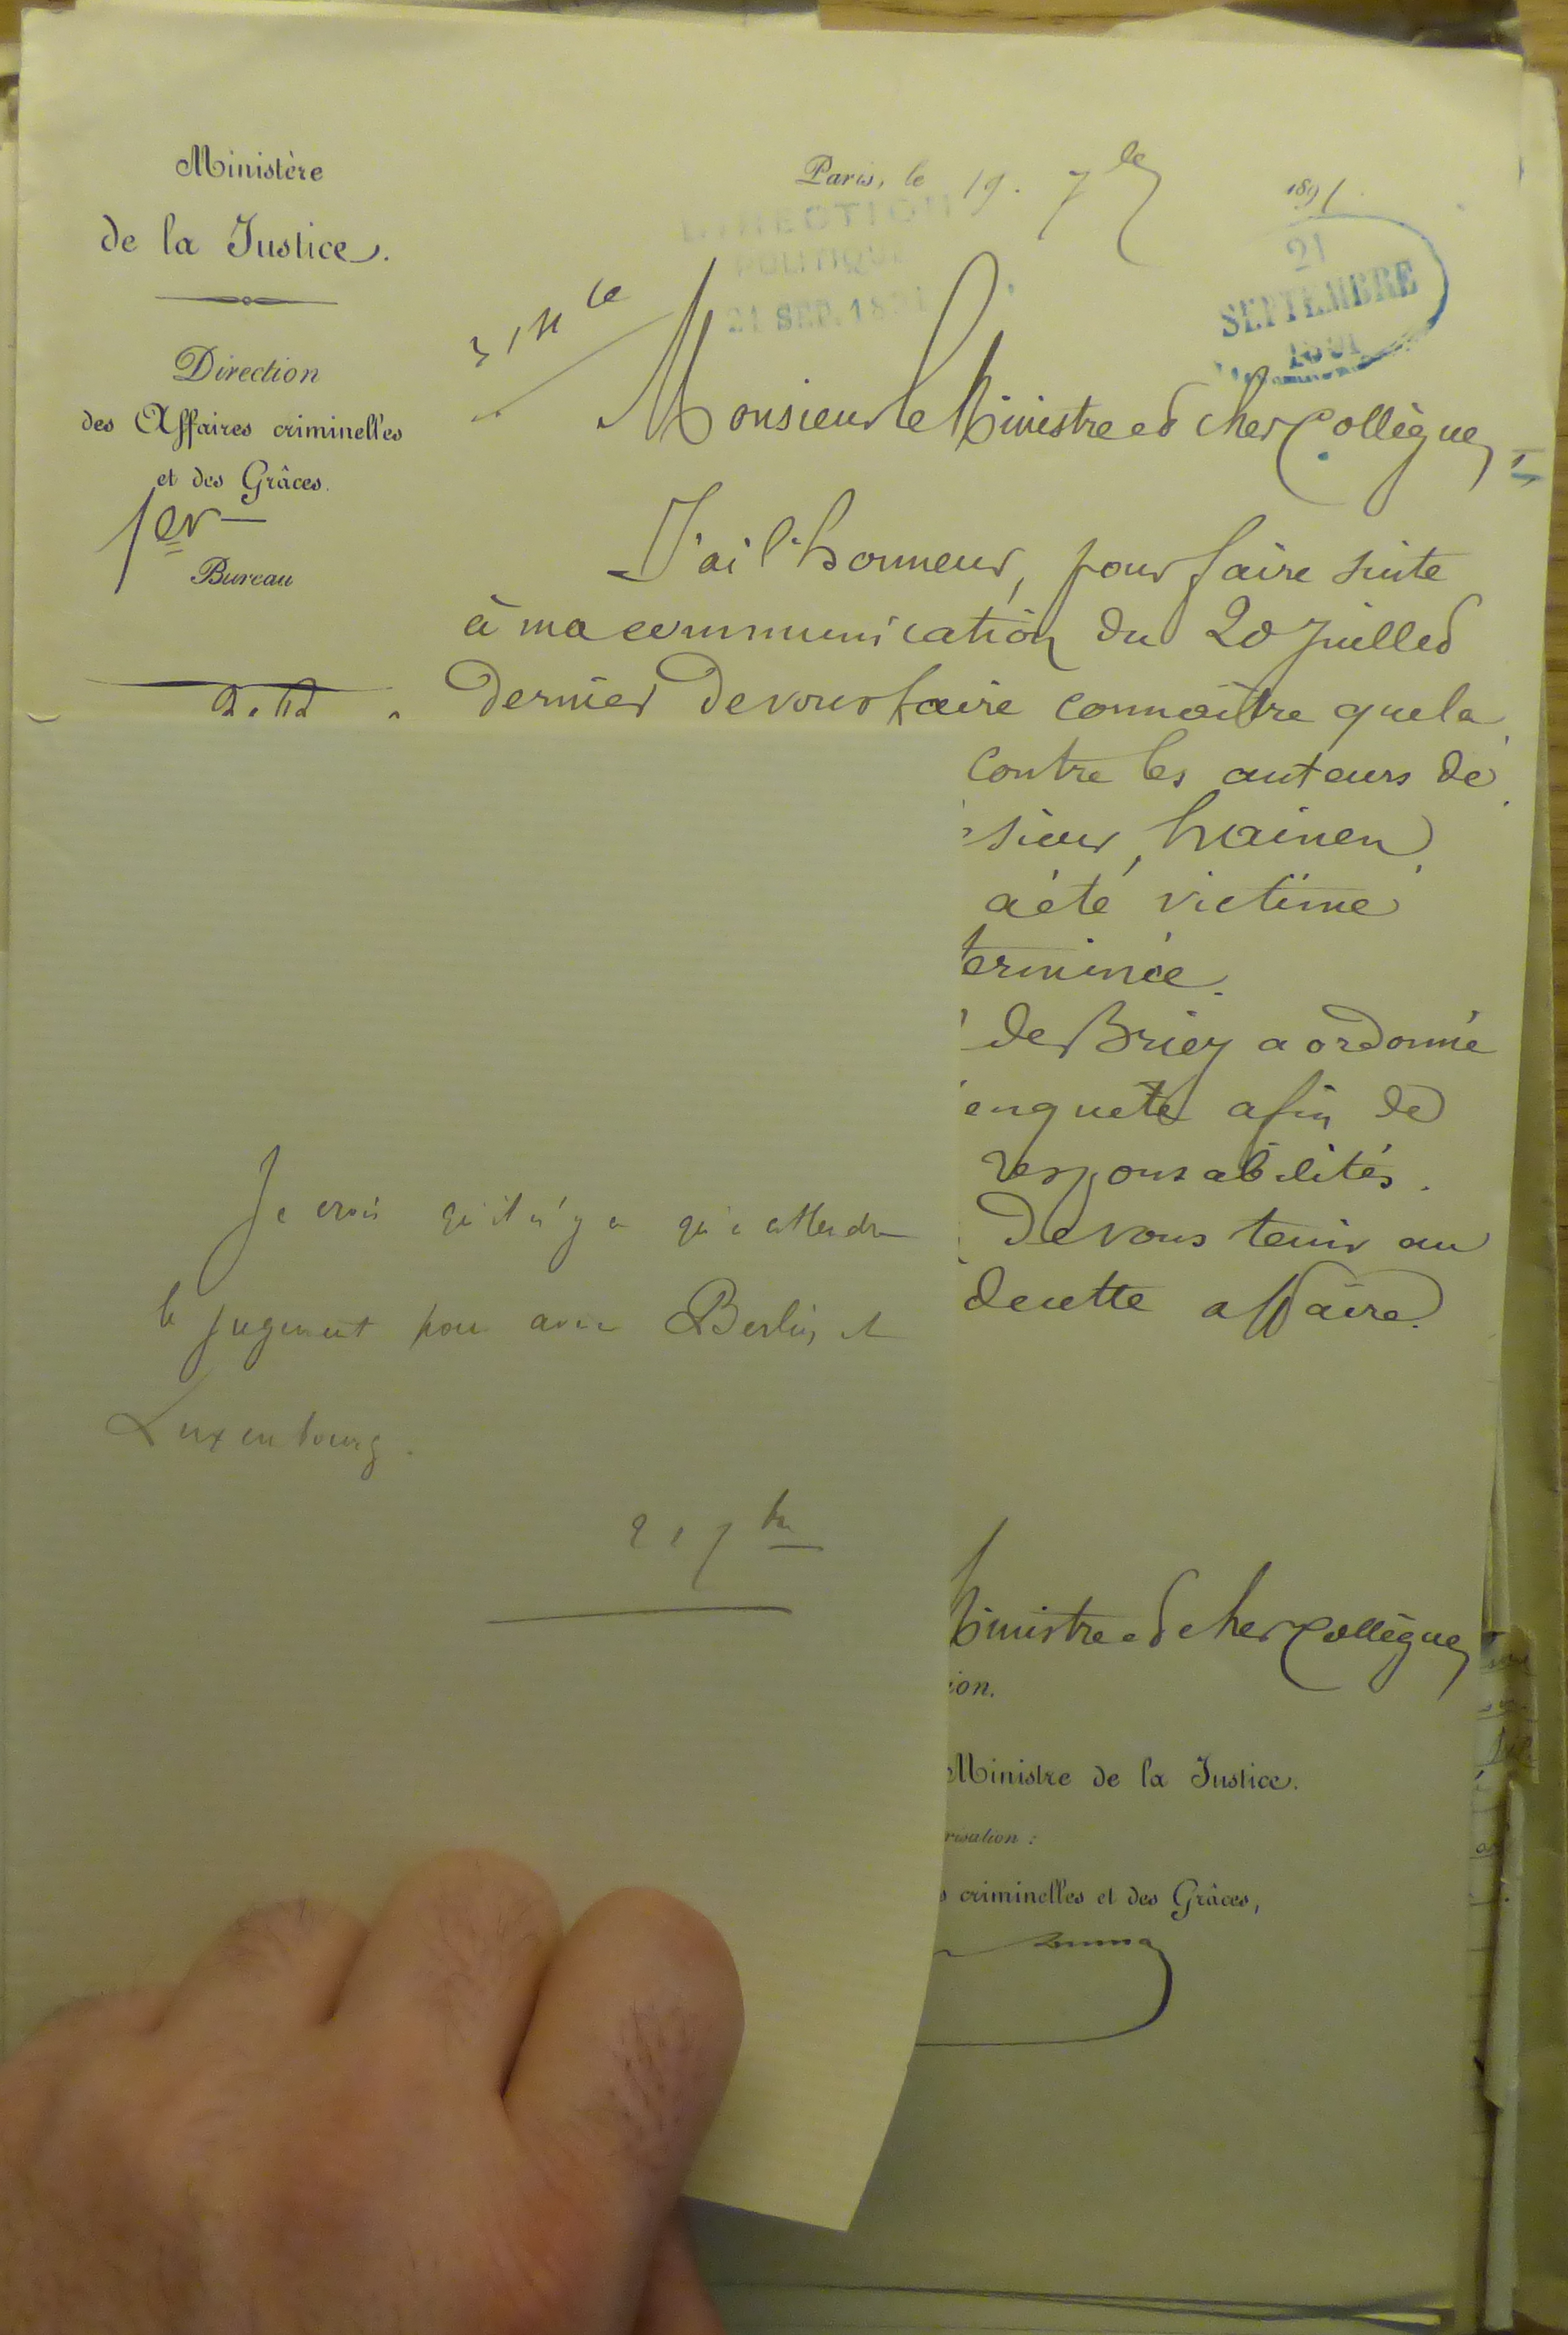 Ministère
de la Justice.
Direction
des Affaires criminelles
et des Grâces.
1er
Bureau
Paris, le 19. 7bre 1891
DIRECTION
POLITIQUE
21 SEP. 1891
21
SEPTEMBRE
1891
Monsieur le Ministre et cher Collègue,
J'ai l'honneur, pour faire suite
à ma communication du 20 Juillet
dernier de vous faire connaître que la
contre les auteurs de
sieur
a été victime
terminée.
de Briey a ordonné
enquête afin de
responsabilités.
de vous tenir au
de cette affaire.
Ministre et cher Collègue
ion.
Ministre de la Justice.
risation :
s criminelles et des Grâces,
Je crois qu'il n'y a qu'à attendre
le jugement pour Berlin et
Luxembourg.
21 7bre